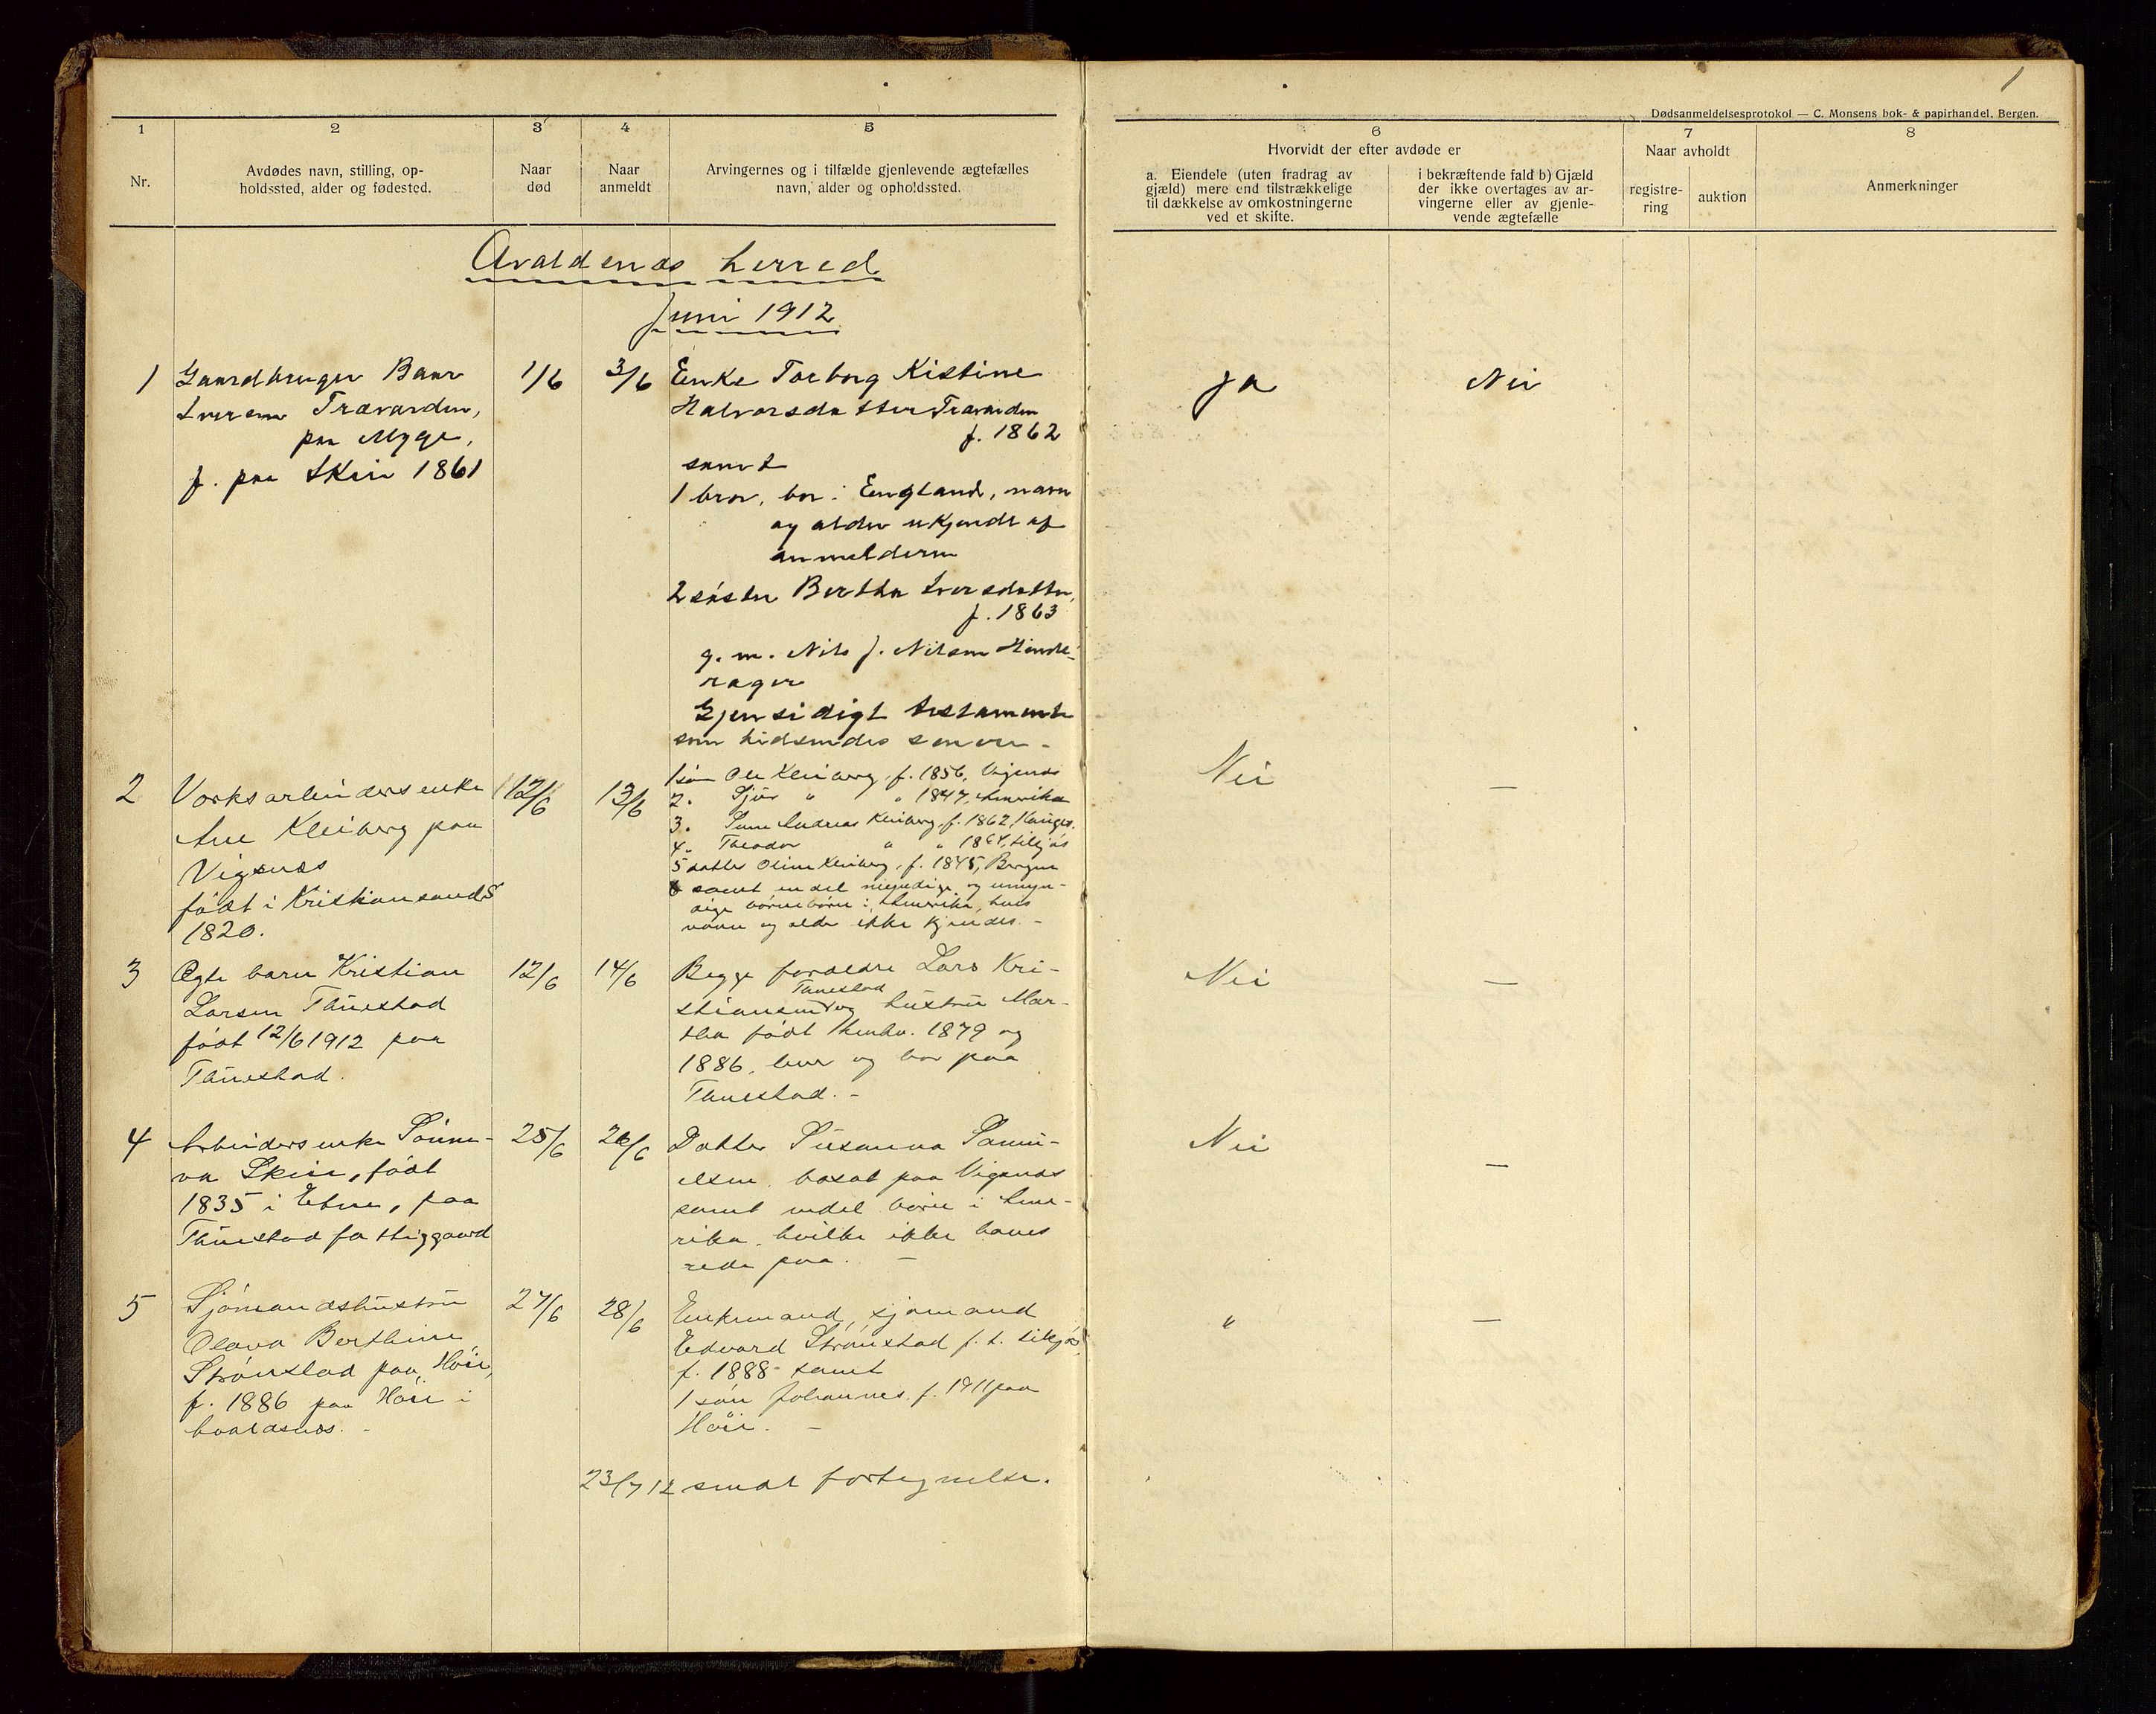 1
Dødsanmeldelsesprotokol — C. Monsens bok- & papirhandel, Bergen.
1
2
3
4
5
6
7
8
Nr.
Avdødes navn, stilling, op-
holdssted, alder og fødested.
Naar
død
Naar
anmeldt
Arvingernes og i tilfælde gjenlevende ægtefælles
navn, alder og opholdssted.
Hvorvidt der efter avdøde er
a. Eiendele (uten fradrag av
gjæld) mere end tilstrækkelige
til dækkelse av omkostningerne
ved et skifte.
i bekræftende fald b) Gjæld
der ikke overtages av ar-
vingerne eller av gjenle-
vende ægtefælle
Naar avholdt
registre-
ring
auktion
Anmerkninger
Avaldsnæs herred
Juni 1912
1
Gaardbruger Baar
Iversen Trævarden,
paa Myge,
f. paa Skeie 1861
1/6
3/6
Enke Torborg Kistine
Halvorsdatter Trævarden
f. 1862
samt
1 bror, bor i England, navn
og alder ukjendt af
anmelderen
2 søster Bertha Iversdatter,
f. 1863
g. m. Nils J. Nilsen
Gjensidigt testamente
som hidsendes senere -
Ja
Nei
2
Verksarbeidersenke
Ane Kleiberg paa
Vigsnæs
født i Kristiansands
1820.
12/6
13/6
1 søn Ole Kleiberg, f. 1856, Vigsnæs
2. Sjur " " 1847, Amerika
3. Andreas Kleiberg, f. 1862,
4. Theodor " " 1864, tilsjøs
5 datter Oline Kleiberg, f. 1845, Bergen
6 samt endel myndige og umyn-
dige børnebørn i Amerika, hvis
navn og alder ikke kjendes. -
Nei
—
3
Ægte barn Kristian
Larsen Tunestad
født 12/6 1912 paa
Tunestad.
12/6
14/6
Begge foreldre Lars Kri-
stiansen Tunestad og hustru Mar-
tha født henhv. 1879 og
1886, lever og bor paa
Tunestad. -
Nei
—
4
Arbeidersenke Sønne-
va Skeie, født
1835 i Etne, paa
Tunestad fattiggaard
25/6
26/6
Datter Susanna Samu-
elsen, bosat paa Vigsnæs
samt endel børn i Ame-
rika, hvilke ikke haves
rede paa. -
Nei
—
5
Sjømandshustru
Olava Berthine
Strønstad paa Høie,
f. 1886 paa Høie i
Avaldsnæs. -
27/6
28/6
Enkemand, sjømand
Edvard Strønstad f. t. tilsjøs,
f. 1888 samt
1 søn Johannes f. 1911 paa
Høie. -
"
—
23/7 12 sendt fortegnelse.